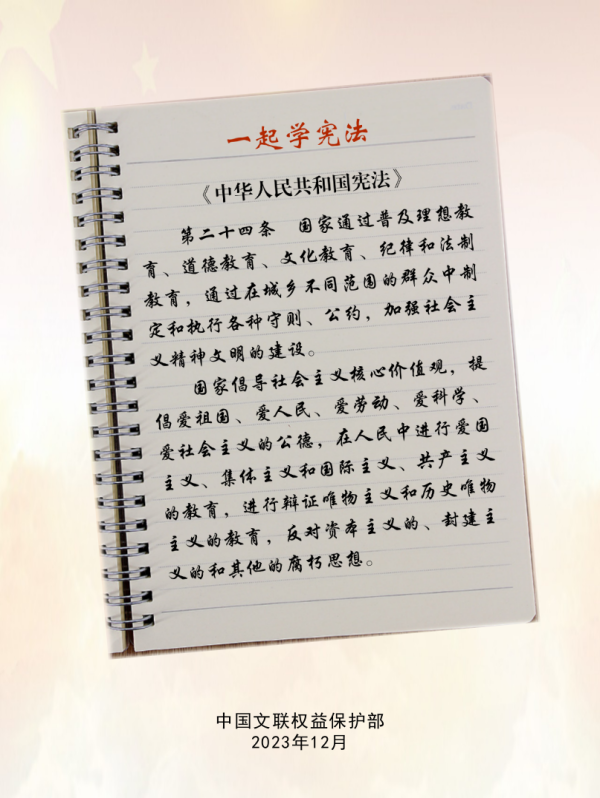 一起学宪法
《中华人民共和国宪法》
第二十四条 国家通过普及理想教
育、道德教育、文化教育、纪律和法制
教育，通过在城乡不同范围的群众中制
定和执行各种守则、公约，加强社会主
义精神文明的建设。
国家倡导社会主义核心价值观，提
倡爱祖国、爱人民、爱劳动、爱科学、
爱社会主义的公德，在人民中进行爱国
主义、集体主义和国际主义、共产主义
的教育，进行辩证唯物主义和历史唯物
主义的教育，反对资本主义的、封建主
义的和其他的腐朽思想。
中国文联权益保护部
2023年12月